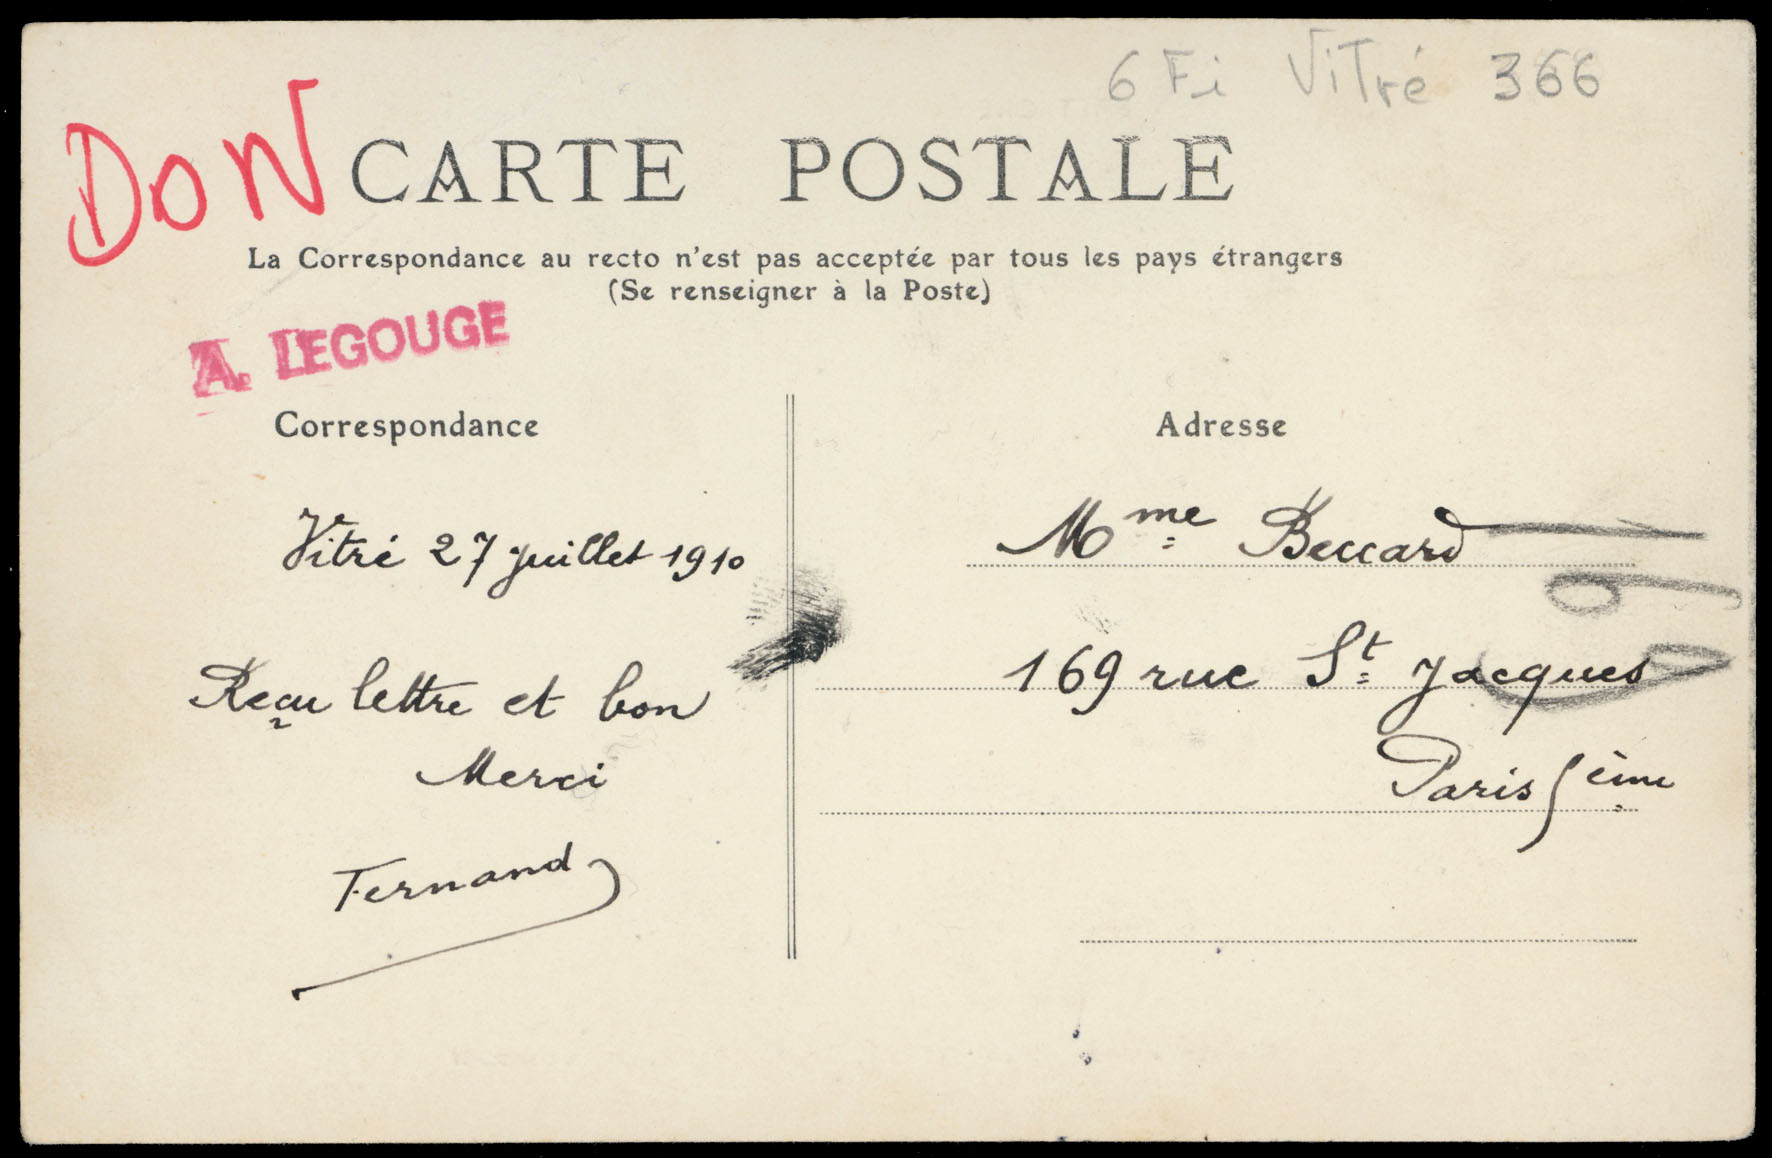 6 Fi Vitré 366
DON
CARTE POSTALE
La Correspondance au recto n'est pas acceptée par tous les pays étrangers
(Se renseigner à la Poste)
A. LEGOUGE
Correspondance
Vitré 27 juillet 1910
Reçu lettre et bon
Merci
Fernand
Adresse
Mme Beccard
169 rue St Jacques
Paris 5ème